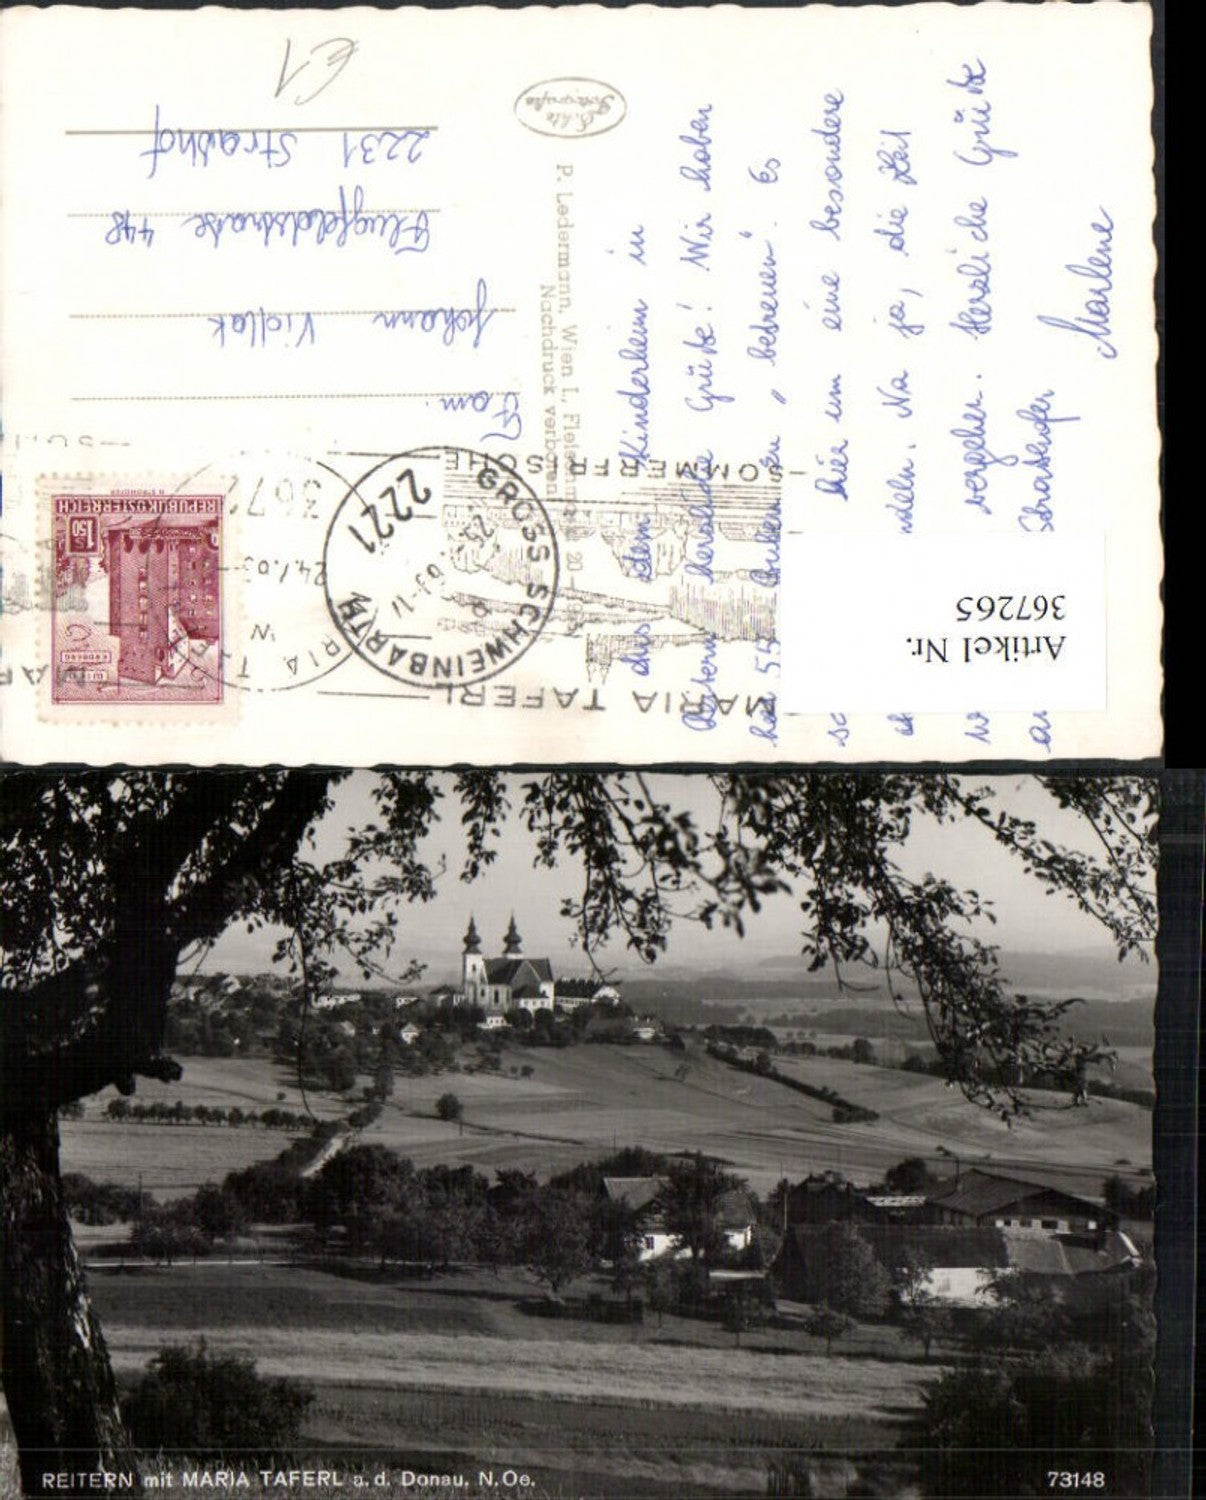 €1
Echte Fotografie
2231 Strasshof
Flugfeldstraße 448
Johann Vidlak
Fam.
P. Ledermann, Wien I., Fleischmarkt 20
Nachdruck verboten
REPUBLIK ÖSTERREICH
S 1.50
GROSS SCHWEINBARTH
2221
SOMMERFRISCHE
MARIA TAFERL
367
24.
MARIA TAFERL
Aus dem Kinderheim in
herzliche Grüße! Wir haben
55 „betreuen“. Es
hier um eine besondere
deln. Na ja, die Zeit
vergehen. Herzliche Grüße
Strasshofer
Marlene
Artikel Nr.
367265
REITERN mit MARIA TAFERL a. d. Donau, N. Oe.
73148